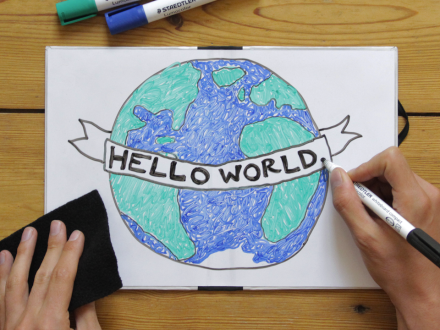 STAEDTLER
HELLO WORLD.